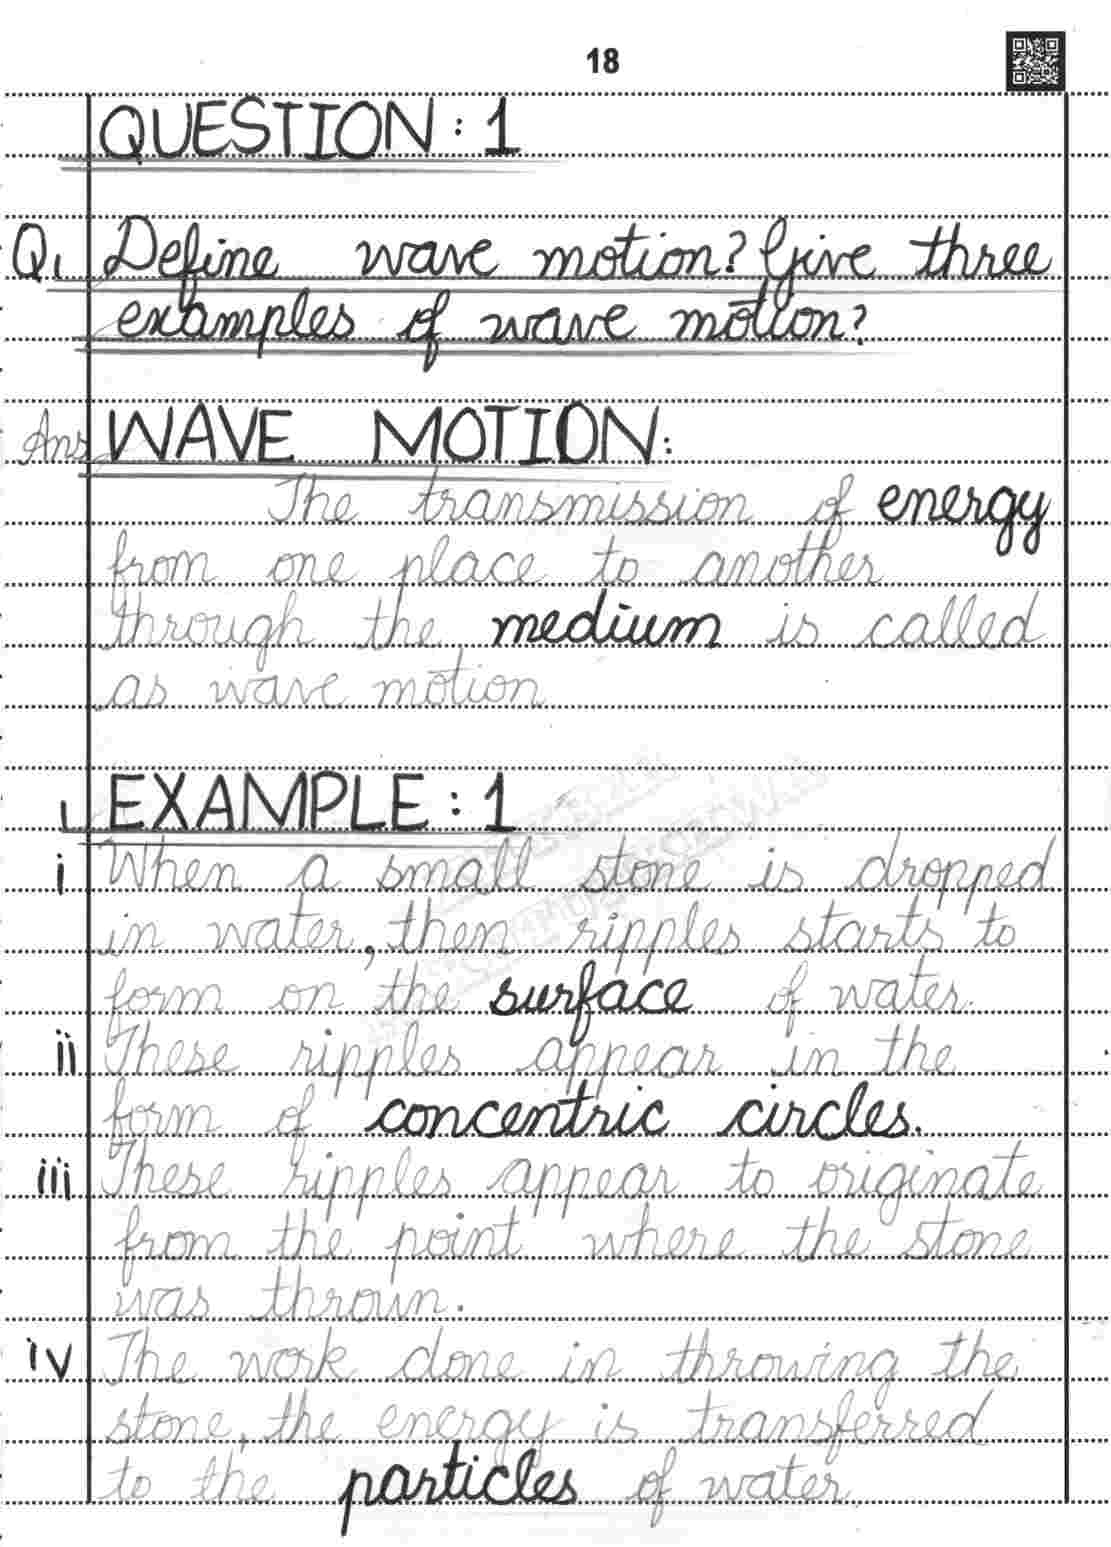 18
QUESTION : 1
Q. Define wave motion? Give three
examples of wave motion?
Ans WAVE MOTION:
The transmission of energy
from one place to another
through the medium is called
as wave motion
1 EXAMPLE : 1
i When a small stone is dropped
in water, then ripples starts to
form on the surface of water.
ii These ripples appear in the
form of concentric circles.
iii These ripples appear to originate
from the point where the stone
was thrown.
iv The work done in throwing the
stone, the energy is transferred
to the particles of water.